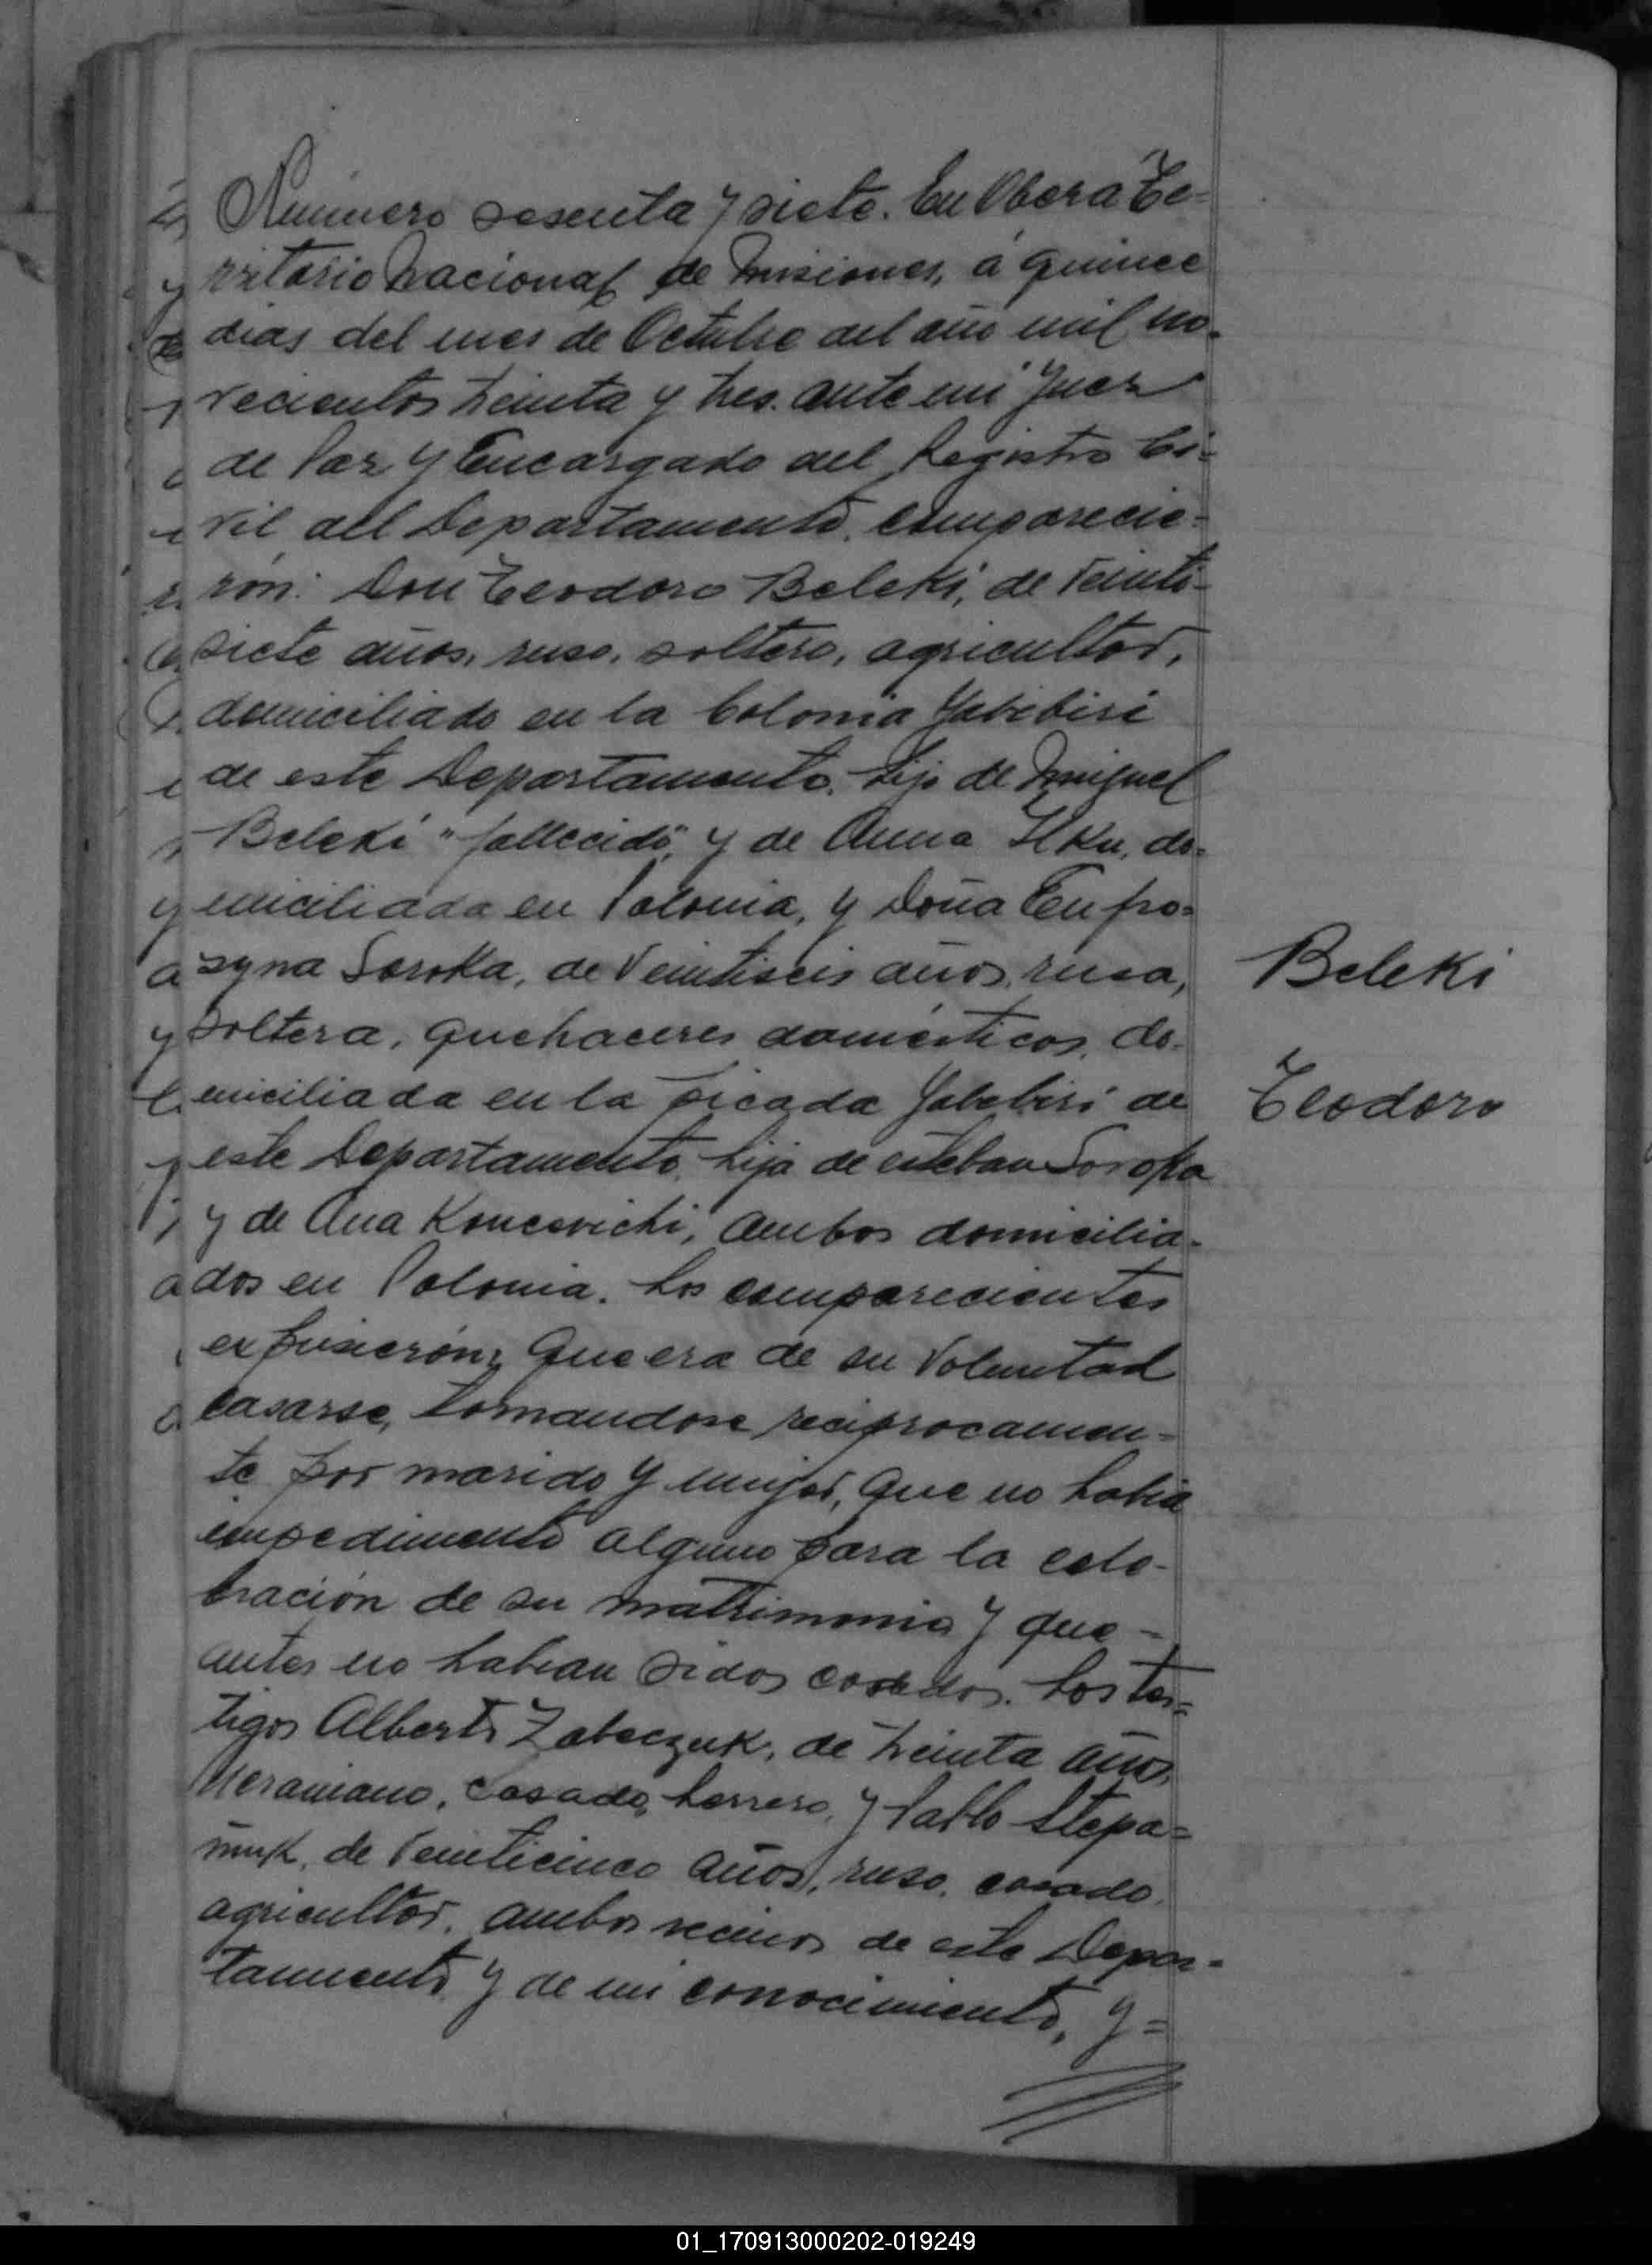 Número sesenta y siete. En Obera Te-
rritorio Nacional de Misiones, á quince
dias del mes de Octubre del año mil no-
vecientos treinta y tres. ante mi Juez
de Paz y Encargado del Registro Ci-
vil del Departamento, comparecie-
rón: Don Teodoro Beleki, de veinti-
siete años, ruso, soltero, agricultor,
domiciliado en la Colonia Yabebiri
de este Departamento, hijo de Miguel
Beleki "fallecido", y de Anna Ilku, do-
miciliada en Polonia, y Doña Eufro-
syna Soroka, de Veintiseis años, rusa,
soltera, quehaceres domésticos, do-
miciliada en la picada Yabebiri de
este Departamento, hija de esteban Soroka
y de Ana Koncevichi, ambos domicilia-
dos en Polonia. Los comparecientes
expusierón, Que era de su Voluntad
casarse, tomandose reciprocamen-
te por marido y mujer, que no habia
impedimento alguno para la cele-
bración de su matrimonio y que -
antes no habian sidos casados. Los tes-
tigos Alberto Zabeczuk, de treinta años,
Ucraniano, casado, herrero, y Pablo Stepa-
niuk, de Veinticinco años, ruso, casado,
agricultor, ambos vecinos de este Depar-
tamento y de mi conocimiento, y=
Beleki
Teodoro
01_170913000202-019249